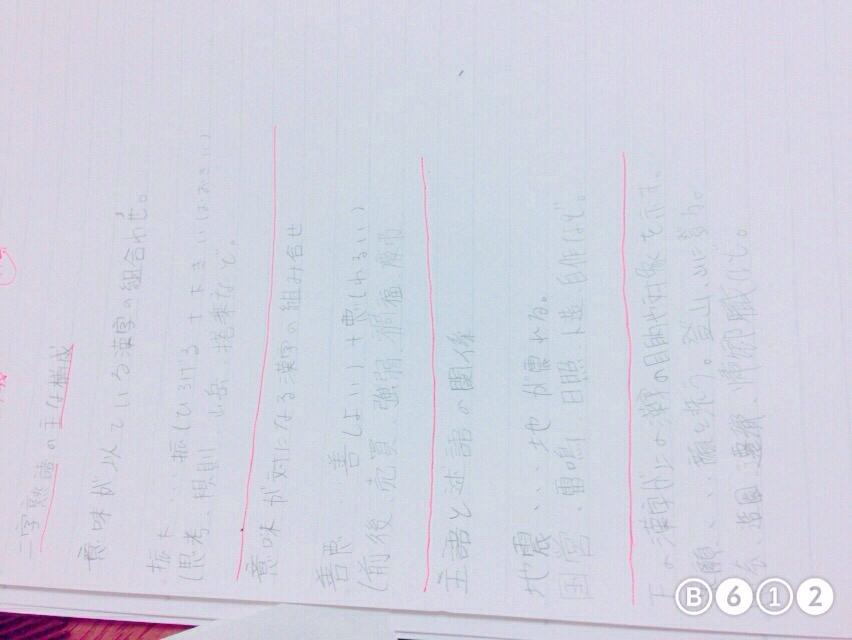 二字熟語の主な構成
意味が似ている漢字の組合わせ。
拡大…拡(ひろげる)+大きい(おおきい)
(思考、規則、山岳、捨棄など。
意味が対になる漢字の組み合せ
善悪…善(よい)+悪(わるい)
(前後、売買、強弱、禍福
主語と述語の関係
地震、、、地が震れる。
国営、雷鳴、日照、人造、自作など。
下の漢字が上の漢字の目的や対象を示す。
、、、を 。登山、山に登る。
帰郷、就職など。
B612